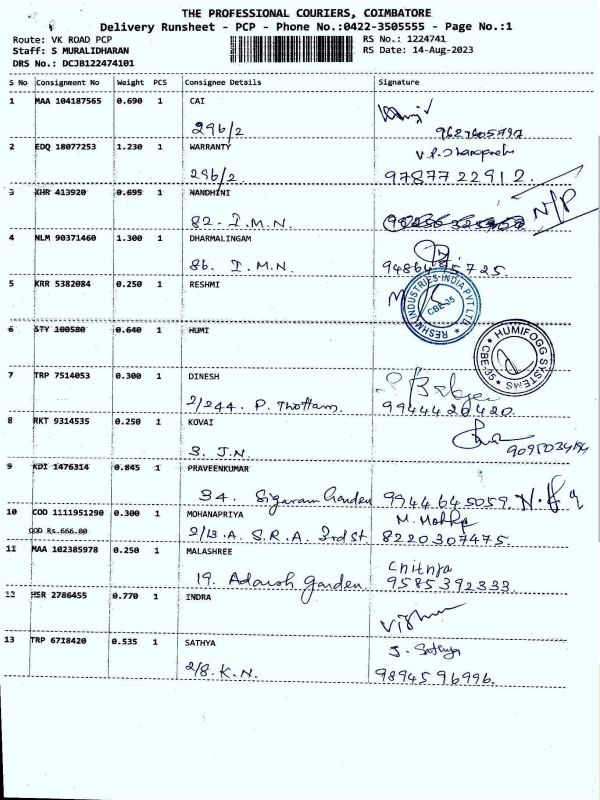 THE PROFESSIONAL COURIERS, COIMBATORE
Delivery Runsheet - PCP - Phone No.:0422-3505555 - Page No.:1
Route: VK ROAD PCP RS No.: 1224741
Staff: S MURALIDHARAN RS Date: 14-Aug-2023
DRS No.: DCJB122474101
S No Consignment No Weight PCS Consignee Details Signature
1 MAA 104187565 0.690 1 CAI
296/2
2 EDQ 18077253 1.230 1 WARRANTY
296/2. 9787722912.
3 KHR 413920 0.695 1 NANDHINI N/P
82- I.M.N.
4 NLM 90371460 1.300 1 DHARMALINGAM
86. I.M.N.
5 KRR 5382084 0.250 1 RESHMI
RESHMI INDUSTRIES INDIA PVT LTD. CBE-35
6 STY 100580 0.640 1 HUMI
HUMIFOGG SYSTEMS CBE-35
7 TRP 7514053 0.300 1 DINESH
2/244. P. Thottam. 9944420420.
8 RKT 9314535 0.250 1 KOVAI
3. J.N.
9 KDI 1476314 0.845 1 PRAVEENKUMAR
34. Sigaram Garden 9944645059
10 COD 1111951290 0.300 1 MOHANAPRIYA
COD Rs.666.00 2/13.A. S.R.A. 3rd St. 8220307475.
11 MAA 102385978 0.250 1 MALASHREE
19. Adarsh Garden 9585392333.
12 HSR 2786455 0.770 1 INDRA
13 TRP 6718420 0.535 1 SATHYA J. Sathya
2/8. K.N. 9894596996.